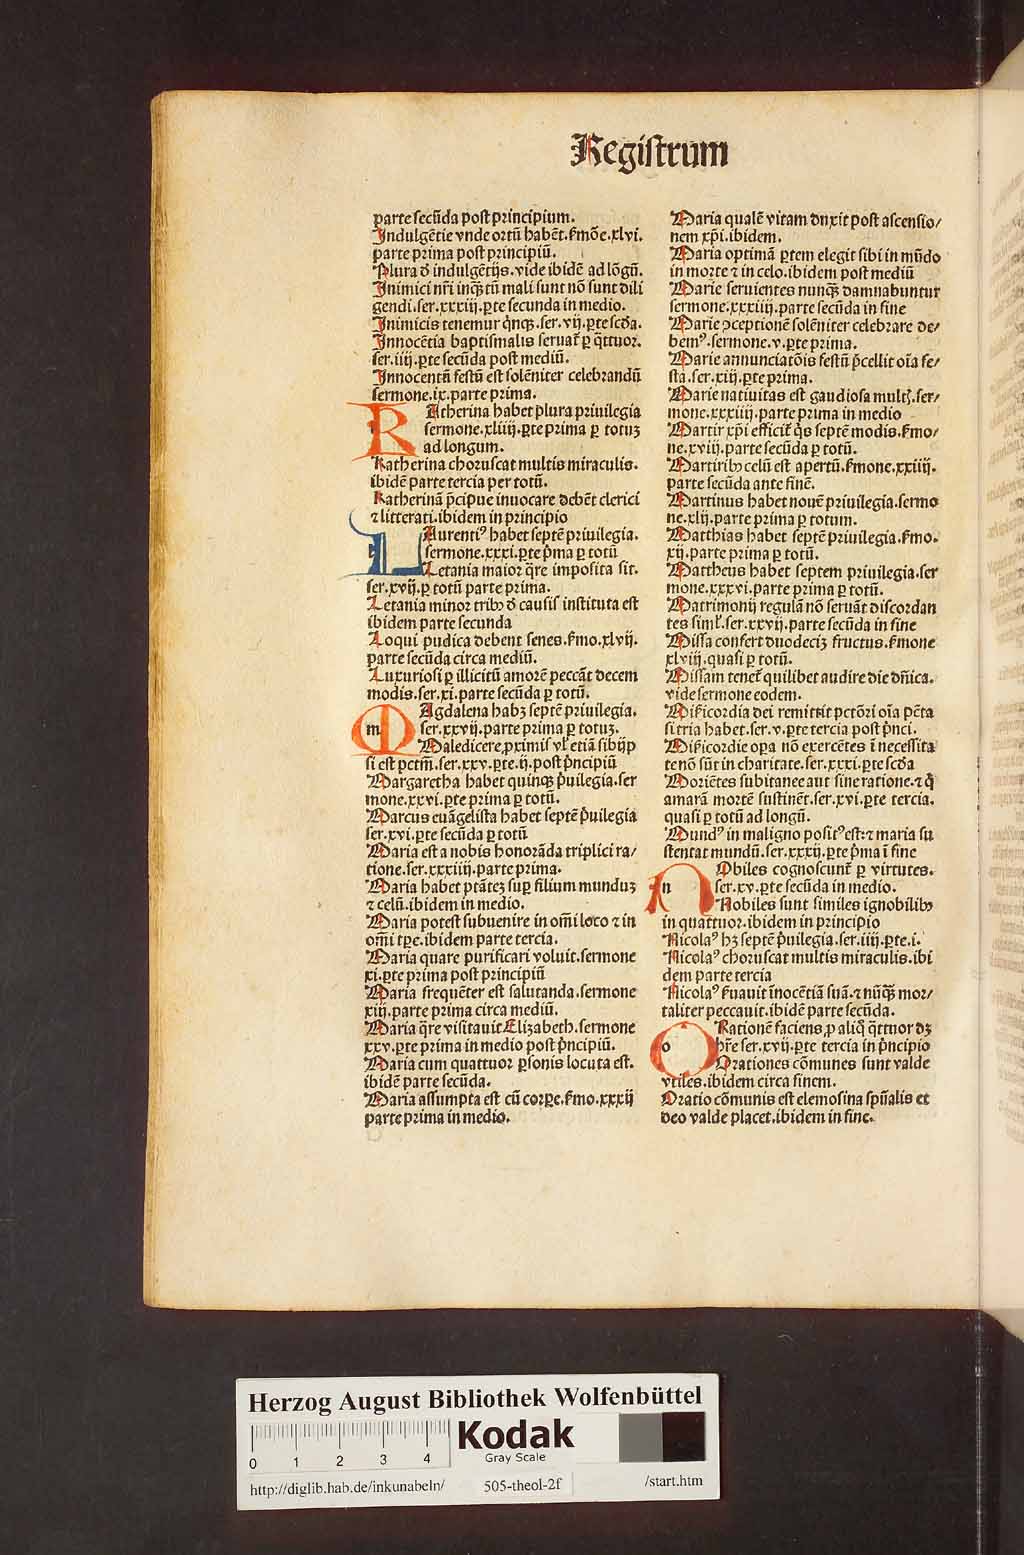 Registrum
parte secũda post principium.
Indulgẽtie vnde ortũ habẽt. ẜmõe. xlvi.
parte prima post principiũ.
Plura ð indulgẽtijs. vide ibidẽ ad lõgũ.
Inimici nr̃i inqꝫtũ mali sunt nõ sunt dili
gendi. ser. xxxiij. ꝑte secunda in medio.
Inimicis tenemur q̃nqꝫ. ser. vij. ꝑte scða.
Innocẽtia baptismalis seruat᷑ ꝑ q̃ttuor.
ser. iiij. ꝑte secũda post mediũ.
Innocentũ festũ est solẽniter celebrandũ
sermone. ix. parte prima.
KAtherina habet plura priuilegia
sermone. xliiij. ꝑte prima ꝑ totuꝫ
ad longum.
Katherina choruscat multis miraculis.
ibidẽ parte tercia per totũ.
Katherinã p̃cipue inuocare debẽt clerici
⁊ litterati. ibidem in principio
LAurentiꝰ habet septẽ priuilegia.
sermone. xxxi. ꝑte p̃ma ꝑ totũ
Letania maior q̃re imposita sit.
ser. xvij. ꝑ totũ parte prima.
Letania minor tribꝫ ð causis instituta est
ibidem parte secunda
Loqui pudica debent senes. ẜmo. xlvij.
parte secũda circa mediũ.
Luxuriosi ꝑ illicitũ amorẽ peccãt decem
modis. ser. xi. parte secũda ꝑ totũ.
m MAgdalena habꝫ septẽ priuilegia.
ser. xxvij. parte prima ꝑ totuꝫ.
Maledicere ꝓximis vl̕ etiã sibijp
si est pctm̃. ser. xxv. ꝑte. ij. post p̃ncipiũ
Margaretha habet quinqꝫ p̃uilegia. ser
mone. xxvi. ꝑte prima ꝑ totũ.
Marcus euãgelista habet septẽ p̃uilegia
ser. xvi. ꝑte secũda ꝑ totũ
Maria est a nobis honorãda triplici ra/
tione. ser. xxxiiij. parte prima.
Maria habet ptãteꝫ suꝑ filium munduꝫ
⁊ celũ. ibidem in medio.
Maria potest subuenire in om̃i loco ⁊ in
om̃i tꝑe. ibidem parte tercia.
Maria quare purificari voluit. sermone
xi. ꝑte prima post principiũ
Maria frequẽter est salutanda. sermone
xiij. parte prima circa mediũ.
Maria q̃re visitauit Elizabeth. sermone
xxv. ꝑte prima in medio post p̃ncipiũ.
Maria cum quattuor ꝑsonis locuta est.
ibidẽ parte secũda.
Maria assumpta est cũ corꝑe. ẜmo. xxxij
parte prima in medio.
Maria qualẽ vitam duxit post ascensio/
nem xp̃i. ibidem.
Maria optimã ꝑtem elegit sibi in mũdo
in morte ⁊ in celo. ibidem post mediũ
Marie seruientes nunqꝫ damnabuntur
sermone. xxxiiij. parte secũda in fine
Marie ↄceptionẽ solẽniter celebrare de/
bemꝰ. sermone. v. ꝑte prima.
Marie annunciatõis festũ p̃cellit oĩa fe/
sta. ser. xiij. ꝑte prima.
Marie natiuitas est gaudiosa mult᷑. ser/
mone. xxxiiij. parte prima in medio
Martir xp̃i efficit᷑ q̃s septẽ modis. ẜmo/
ne. xviij. parte secũda ꝑ totũ.
Martiribꝫ celũ est apertũ. ẜmone. xxiiij.
parte secũda ante finẽ.
Martinus habet nouẽ priuilegia. sermo
ne. xlij. parte prima ꝑ totum.
Matthias habet septẽ priuilegia. ẜmo.
xij. parte prima ꝑ totũ.
Mattheus habet septem priuilegia. ser
mone. xxxvi. parte prima ꝑ totũ.
Matrimonij regulã nõ seruãt discordan
tes siml̕. ser. xxvij. parte secũda in fine
Missa confert duodeciꝫ fructus. ẜmone
xlviij. quasi ꝑ totũ.
Missam tenet᷑ quilibet audire die dñica.
vide sermone eodem.
Miẜicordia dei remittit pctõri oĩa pc̃ta
si tria habet. ser. v. ꝑte tercia post p̃nci.
Miẜicordie oꝑa nõ exercẽtes ĩ necessita
te nõ sũt in charitate. ser. xxxi. ꝑte scða
Moriẽtes subitanee aut sine ratione. ⁊ q̃
amarã mortẽ sustinẽt. ser. xvi. ꝑte tercia.
quasi ꝑ totũ ad longũ.
Mundꝰ in maligno positꝰ est: ⁊ maria su
stentat mundũ. ser. xxxij. ꝑte p̃ma ĩ fine
n NObiles cognoscunt᷑ ꝑ virtutes.
ser. xv. ꝑte secũda in medio.
Nobiles sunt similes ignobilibꝫ
in quattuor. ibidem in principio
Nicolaꝰ hꝫ septẽ p̃uilegia. ser. iiij. ꝑte. i.
Nicolaꝰ choruscat multis miraculis. ibi
dem parte tercia
Nicolaꝰ ẜuauit ĩnocẽtiã suã. ⁊ nũqꝫ mor/
taliter peccauit. ibidẽ parte secũda.
o ORationẽ faciens ꝓ aliq̃ q̃ttuor dꝫ
hr̃e ser. xvij. ꝑte tercia in p̃ncipio
Orationes cõmunes sunt valde
vtiles. ibidem circa finem.
Oratio cõmunis est elemosina spũalis et
deo valde placet. ibidem in fine.
Herzog August Bibliothek Wolfenbüttel
0 1 2 3 4
Kodak
Gray Scale
http://diglib.hab.de/inkunabeln/ 505-theol-2f /start.htm